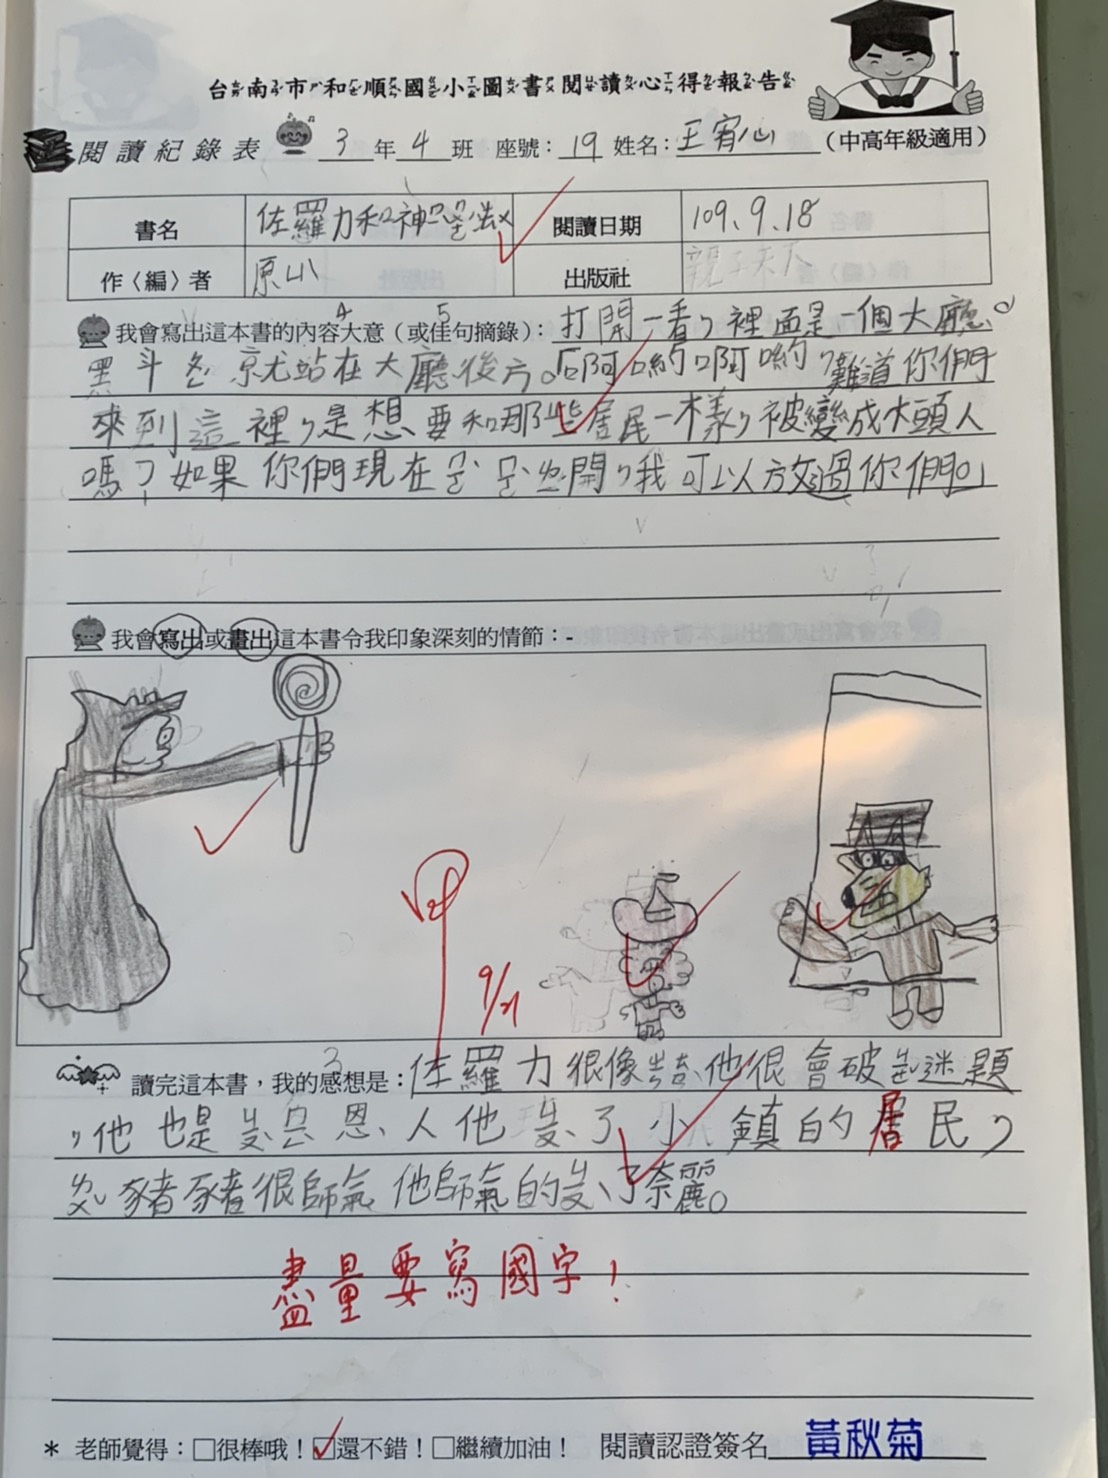 台南市和順國小圖書閱讀心得報告
閱讀紀錄表 3年4班 座號：19 姓名：王宥心 （中高年級適用）
書名 佐羅力和神ㄇㄧˋ 閱讀日期 109、9、18
作〈編〉者 原ㄕㄢ 出版社 親子天下
我會寫出這本書的內容大意（或佳句摘錄）：打開一看，裡面是一個大廳。
黑斗ㄆㄥˊ就站在大廳後方。「啊喲啊喲，難道你們
來到這裡，是想要和那些居民一樣，被變成大頭人
嗎？如果你們現在ㄌㄧˊ開，我可以放過你們。」
我會寫出或畫出這本書令我印象深刻的情節：-
甲
9/21
讀完這本書，我的感想是：佐羅力很像他很會破迷題
，他也是恩人他了小鎮的居民，
豬豬很師氣他師氣的了奈麗。
盡量要寫國字！
* 老師覺得：□很棒哦！☑還不錯！□繼續加油！ 閱讀認證簽名 黃秋菊